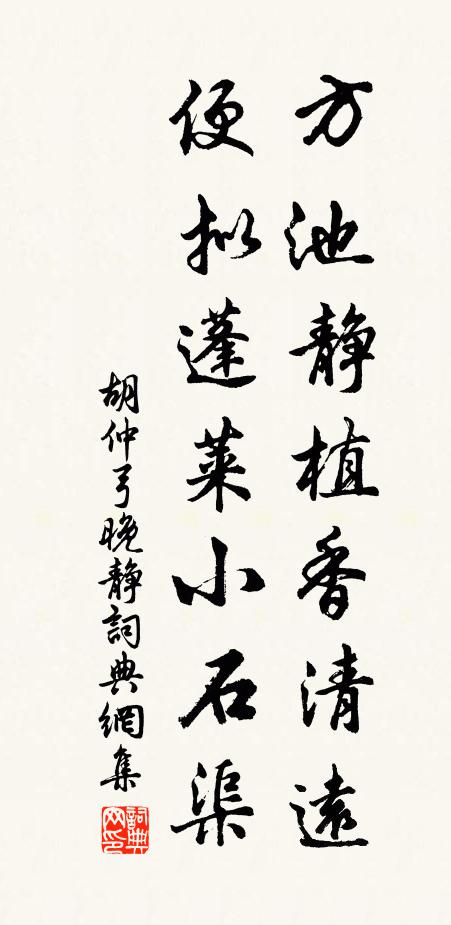 方池静植香清遠
便拟蓬莱小石渠
胡仲弓晚静詞典網集
詞典网印